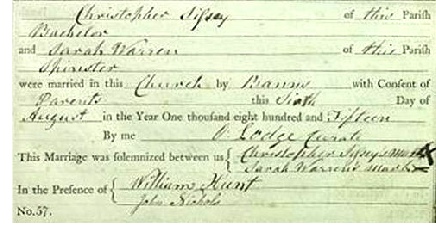 Christopher Sipsey of this Parish
Bachelor
and Sarah Warren of this Parish
Spinster
were married in this Church by Banns with Consent of
Parents this Sixth Day of
August in the Year One thousand eight hundred and Fifteen
By me O. Lodge Curate
This Marriage was solemnized between us { Christopher Sipsey's mark X
Sarah Warren's mark
In the Presence of { Williams Hunt
John Nichols
No.57.